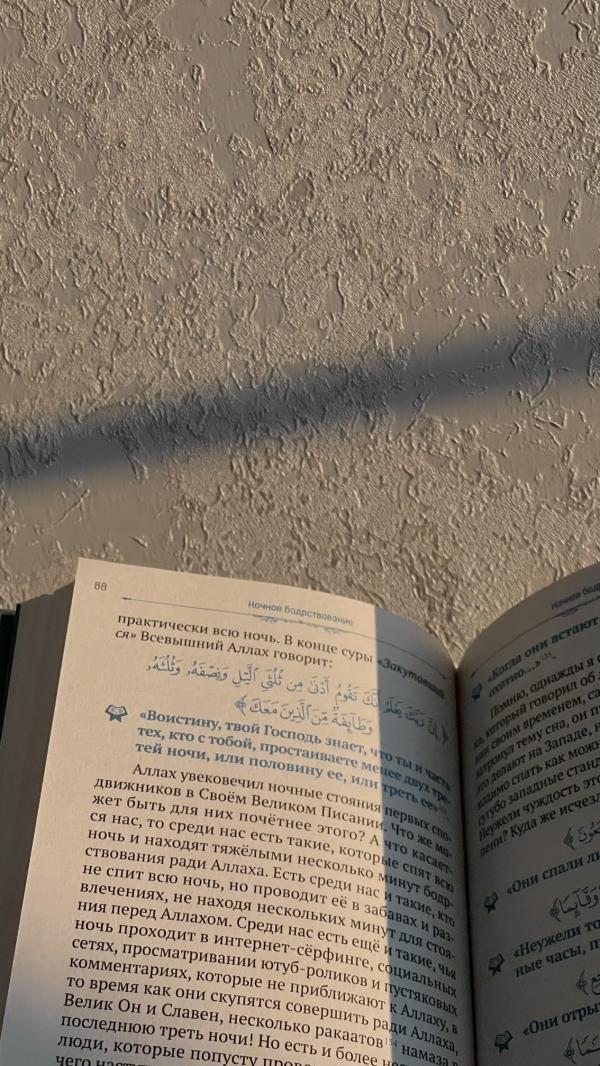 88
Ночное бодрствование
практически всю ночь. В конце суры «Закутавший-
ся» Всевышний Аллах говорит:
﴿ إِنَّ رَبَّكَ يَعْلَمُ أَنَّكَ تَقُومُ أَدْنَىٰ مِن ثُلُثَيِ ٱلَّيْلِ وَنِصْفَهُۥ وَثُلُثَهُۥ
وَطَآئِفَةٌ مِّنَ ٱلَّذِينَ مَعَكَ ﴾
«Воистину, твой Господь знает, что ты и часть
тех, кто с тобой, простаиваете менее двух тре-
тей ночи, или половину ее, или треть ее»
Аллах увековечил ночные стояния первых спо-
движников в Своём Великом Писании. Что же мо-
жет быть для них почётнее этого? А что касает-
ся нас, то среди нас есть такие, которые спят всю
ночь и находят тяжёлыми несколько минут бодр-
ствования ради Аллаха. Есть среди нас и такие, кто
не спит всю ночь, но проводит её в забавах и раз-
влечениях, не находя нескольких минут для стоя-
ния перед Аллахом. Среди нас есть ещё и такие, чья
ночь проходит в интернет-сёрфинге, социальных
сетях, просматривании ютуб-роликов и пустяковых
комментариях, которые не приближают к Аллаху, в
то время как они скупятся совершить ради Аллаха,
Велик Он и Славен, несколько ракаатов¹³⁴ намаза в
последнюю треть ночи! Но есть и более
люди, которые попусту
чего
Ночное
«Когда они встают
охотно...»
Помню, однажды я
который говорил об
своим временем,
тему сна, он
делают на Западе,
спать как
сугубо западные
Неужели чуждость
Куда же
«Они спали
وَقِيَامًا ﴾
«Неужели
ные часы,
«Они